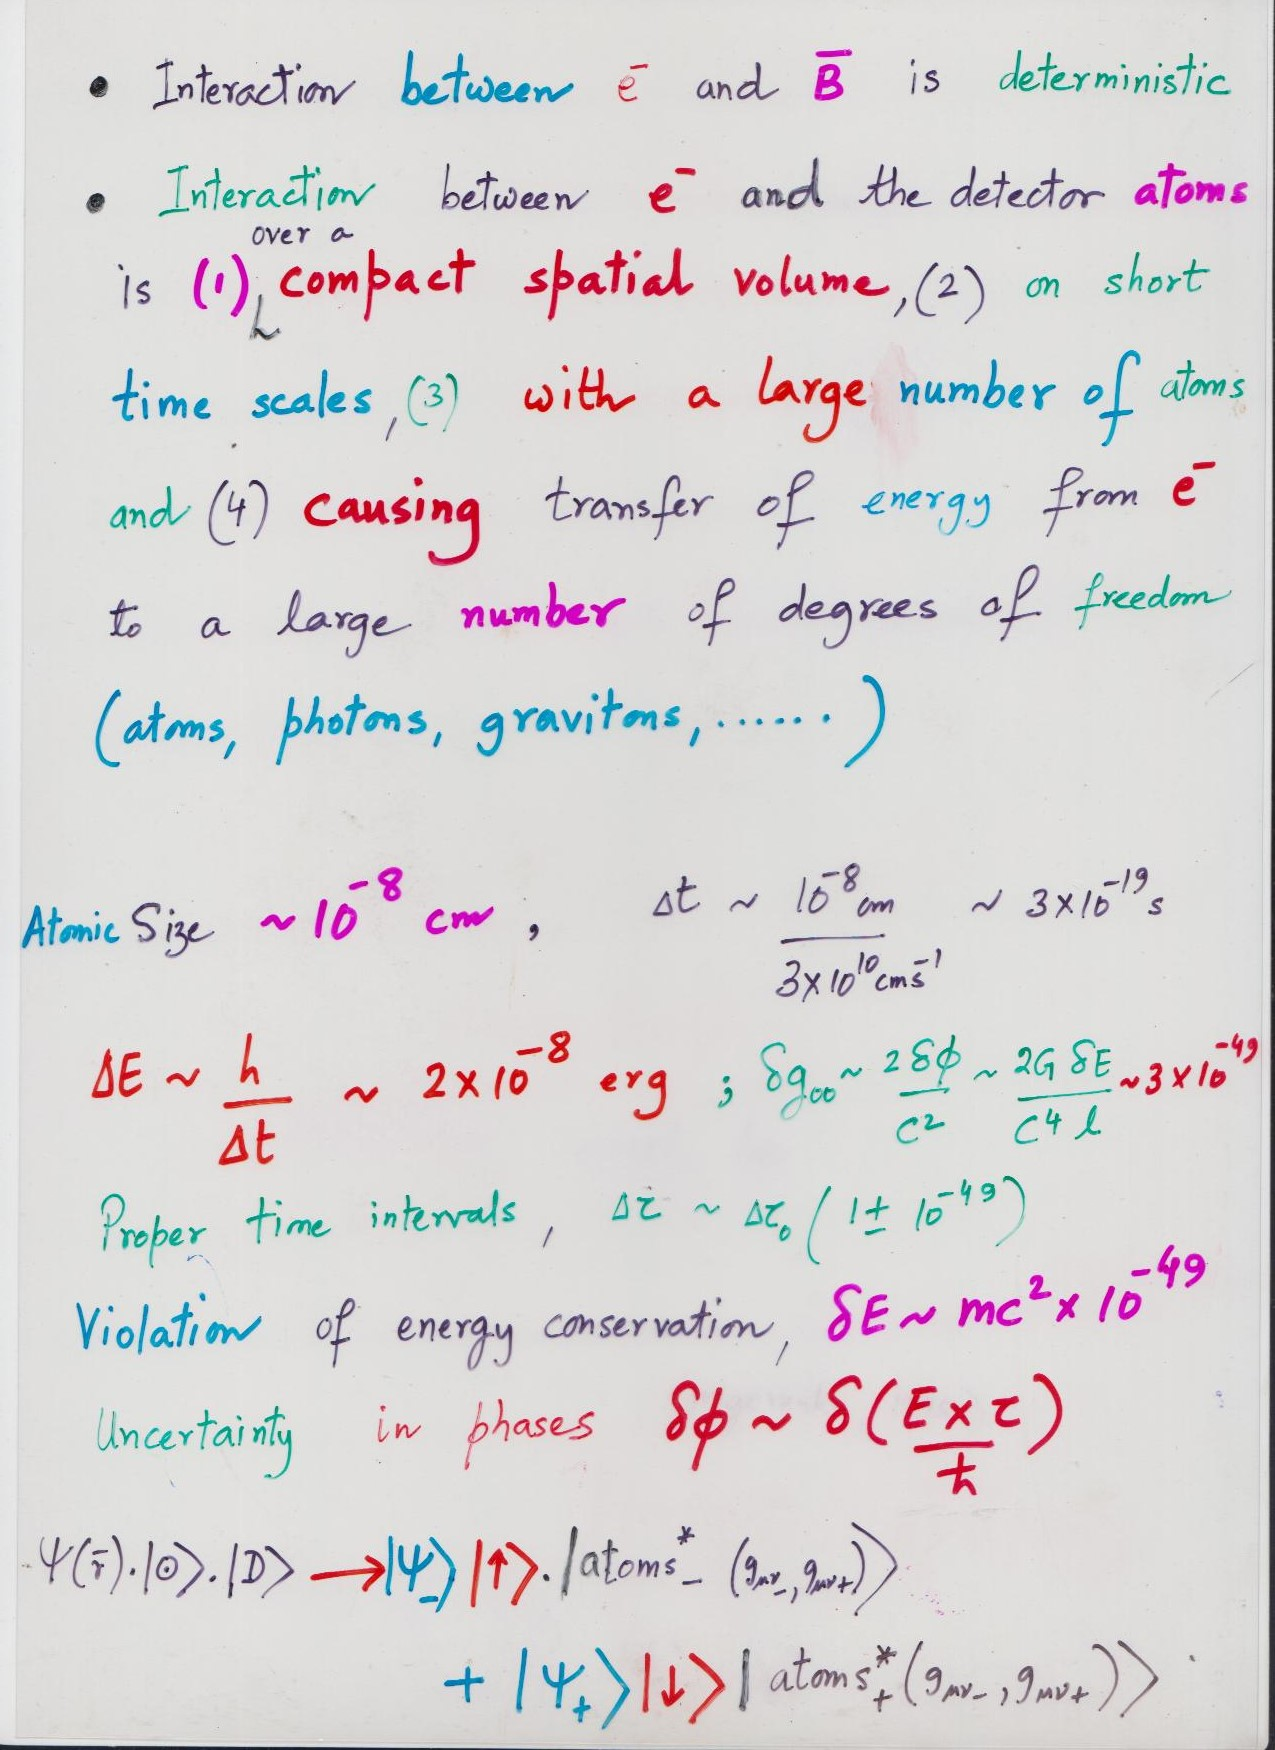 • Interaction between e⁻ and B̄ is deterministic
• Interaction between e⁻ and the detector atoms
over a
is (1) compact spatial volume, (2) on short
time scales, (3) with a large number of atoms
and (4) causing transfer of energy from e⁻
to a large number of degrees of freedom
(atoms, photons, gravitons, ......)
Atomic Size ~ 10⁻⁸ cm, Δt ~ 10⁻⁸ cm / 3×10¹⁰ cm s⁻¹ ~ 3×10⁻¹⁹ s
ΔE ~ h / Δt ~ 2×10⁻⁸ erg ; δg₀₀ ~ 2δϕ / c² ~ 2G δE / c⁴ l ~ 3×10⁻⁴⁹
Proper time intervals, Δτ ~ Δτ₀ (1 ± 10⁻⁴⁹)
Violation of energy conservation, δE ~ mc² × 10⁻⁴⁹
Uncertainty in phases δϕ ~ δ(E × τ / ħ)
Ψ(r̄).|⊙⟩.|D⟩ → |Ψ₋⟩ |↑⟩.|atoms*₋ (gμν₋, gμν₊)⟩
+ |Ψ₊⟩ |↓⟩ |atoms*₊ (gμν₋, gμν₊)⟩